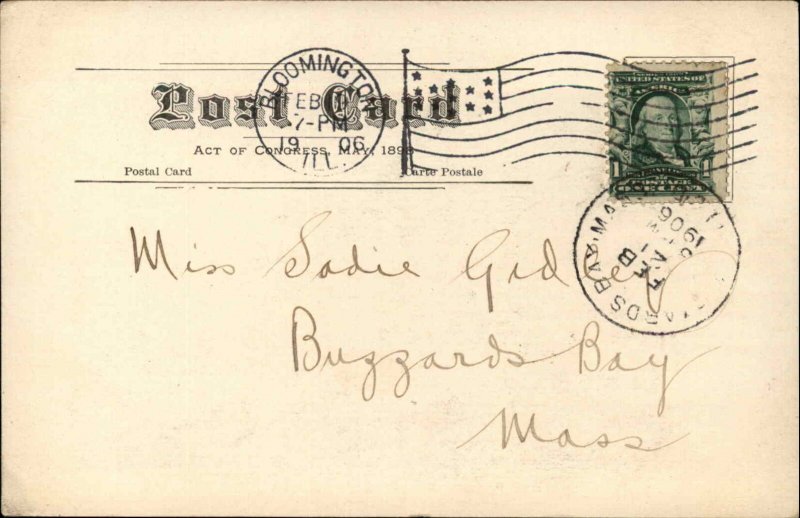 Post Card
ACT OF CONGRESS, MAY, 1898
Postal Card
Carte Postale
BLOOMINGTON
FEB
7-PM
19 06
ILL.
UNITED STATES OF
AMERICA
1 1
POSTAGE
ONE CENT
MASS
1906
FEB
BAY
Miss Sadie
Buzzards Bay
Mass